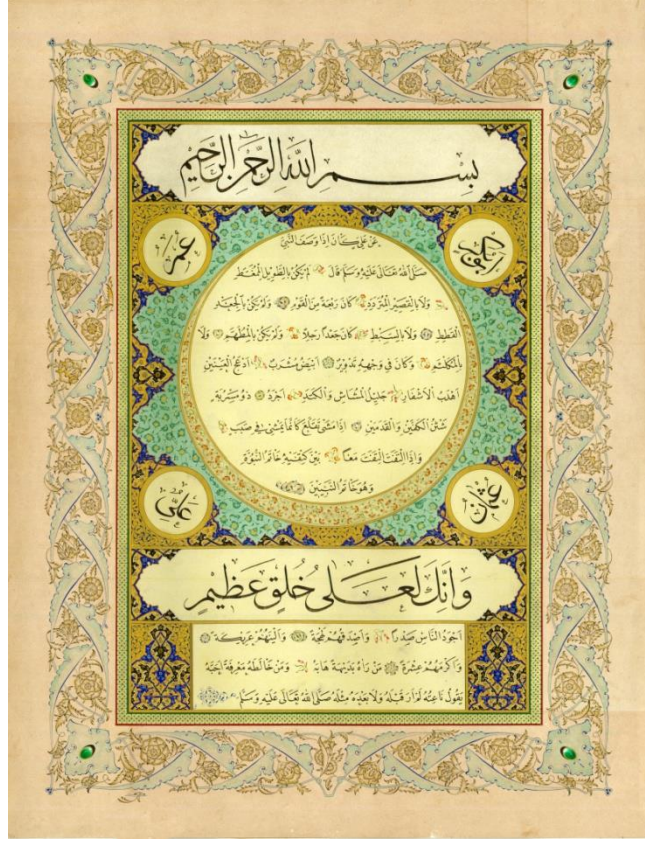 بِسْمِ اللهِ الرَّحْمٰنِ الرَّحِيمِ
ابوبكر
عُمَر
عَنْ عَلِيٍّ كَانَ اِذَا وَصَفَ النَّبِيَّ
صَلَّى اللهُ تَعَالٰى عَلَيْهِ وَسَلَّمَ قَالَ لَمْ يَكُنْ بِالطَّوِيلِ الْمُمَّغِطِ
وَلَا بِالْقَصِيرِ الْمُتَرَدِّدِ كَانَ رَبْعَةً مِنَ الْقَوْمِ وَلَمْ يَكُنْ بِالْجَعْدِ
الْقَطِطِ وَلَا بِالسَّبِطِ كَانَ جَعْدًا رَجِلًا وَلَمْ يَكُنْ بِالْمُطَهَّمِ وَلَا
بِالْمُكَلْثَمِ وَكَانَ فِي وَجْهِهِ تَدْوِيرٌ اَبْيَضُ مُشْرَبٌ اَدْعَجُ الْعَيْنَيْنِ
اَهْدَبُ الْاَشْفَارِ جَلِيلُ الْمُشَاشِ وَالْكَتَدِ اَجْرَدُ ذُو مَسْرُبَةٍ
شَثْنُ الْكَفَّيْنِ وَالْقَدَمَيْنِ اِذَا مَشٰى تَقَلَّعَ كَاَنَّمَا يَمْشِي فِي صَبَبٍ
وَاِذَا الْتَفَتَ الْتَفَتَ مَعًا بَيْنَ كَتِفَيْهِ خَاتَمُ النُّبُوَّةِ
وَهُوَ خَاتَمُ النَّبِيِّينَ
عُثْمَان
عَلِيّ
وَاِنَّكَ لَعَلٰى خُلُقٍ عَظِيمٍ
اَجْوَدُ النَّاسِ صَدْرًا وَاَصْدَقُهُمْ لَهْجَةً وَاَلْيَنُهُمْ عَرِيكَةً
وَاَكْرَمُهُمْ عِشْرَةً مَنْ رَاٰهُ بَدِيهَةً هَابَهُ وَمَنْ خَالَطَهُ مَعْرِفَةً اَحَبَّهُ
يَقُولُ نَاعِتُهُ لَمْ اَرَ قَبْلَهُ وَلَا بَعْدَهُ مِثْلَهُ صَلَّى اللهُ تَعَالٰى عَلَيْهِ وَسَلَّمَ